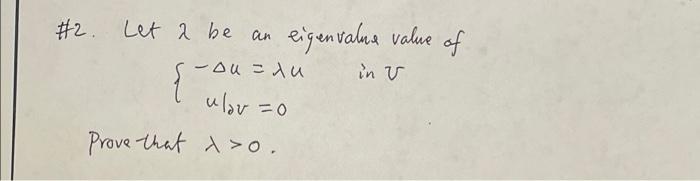 #2. Let λ be an eigenvalue value of
{ -Δu = λu in U
u|∂U = 0
Prove that λ > 0.